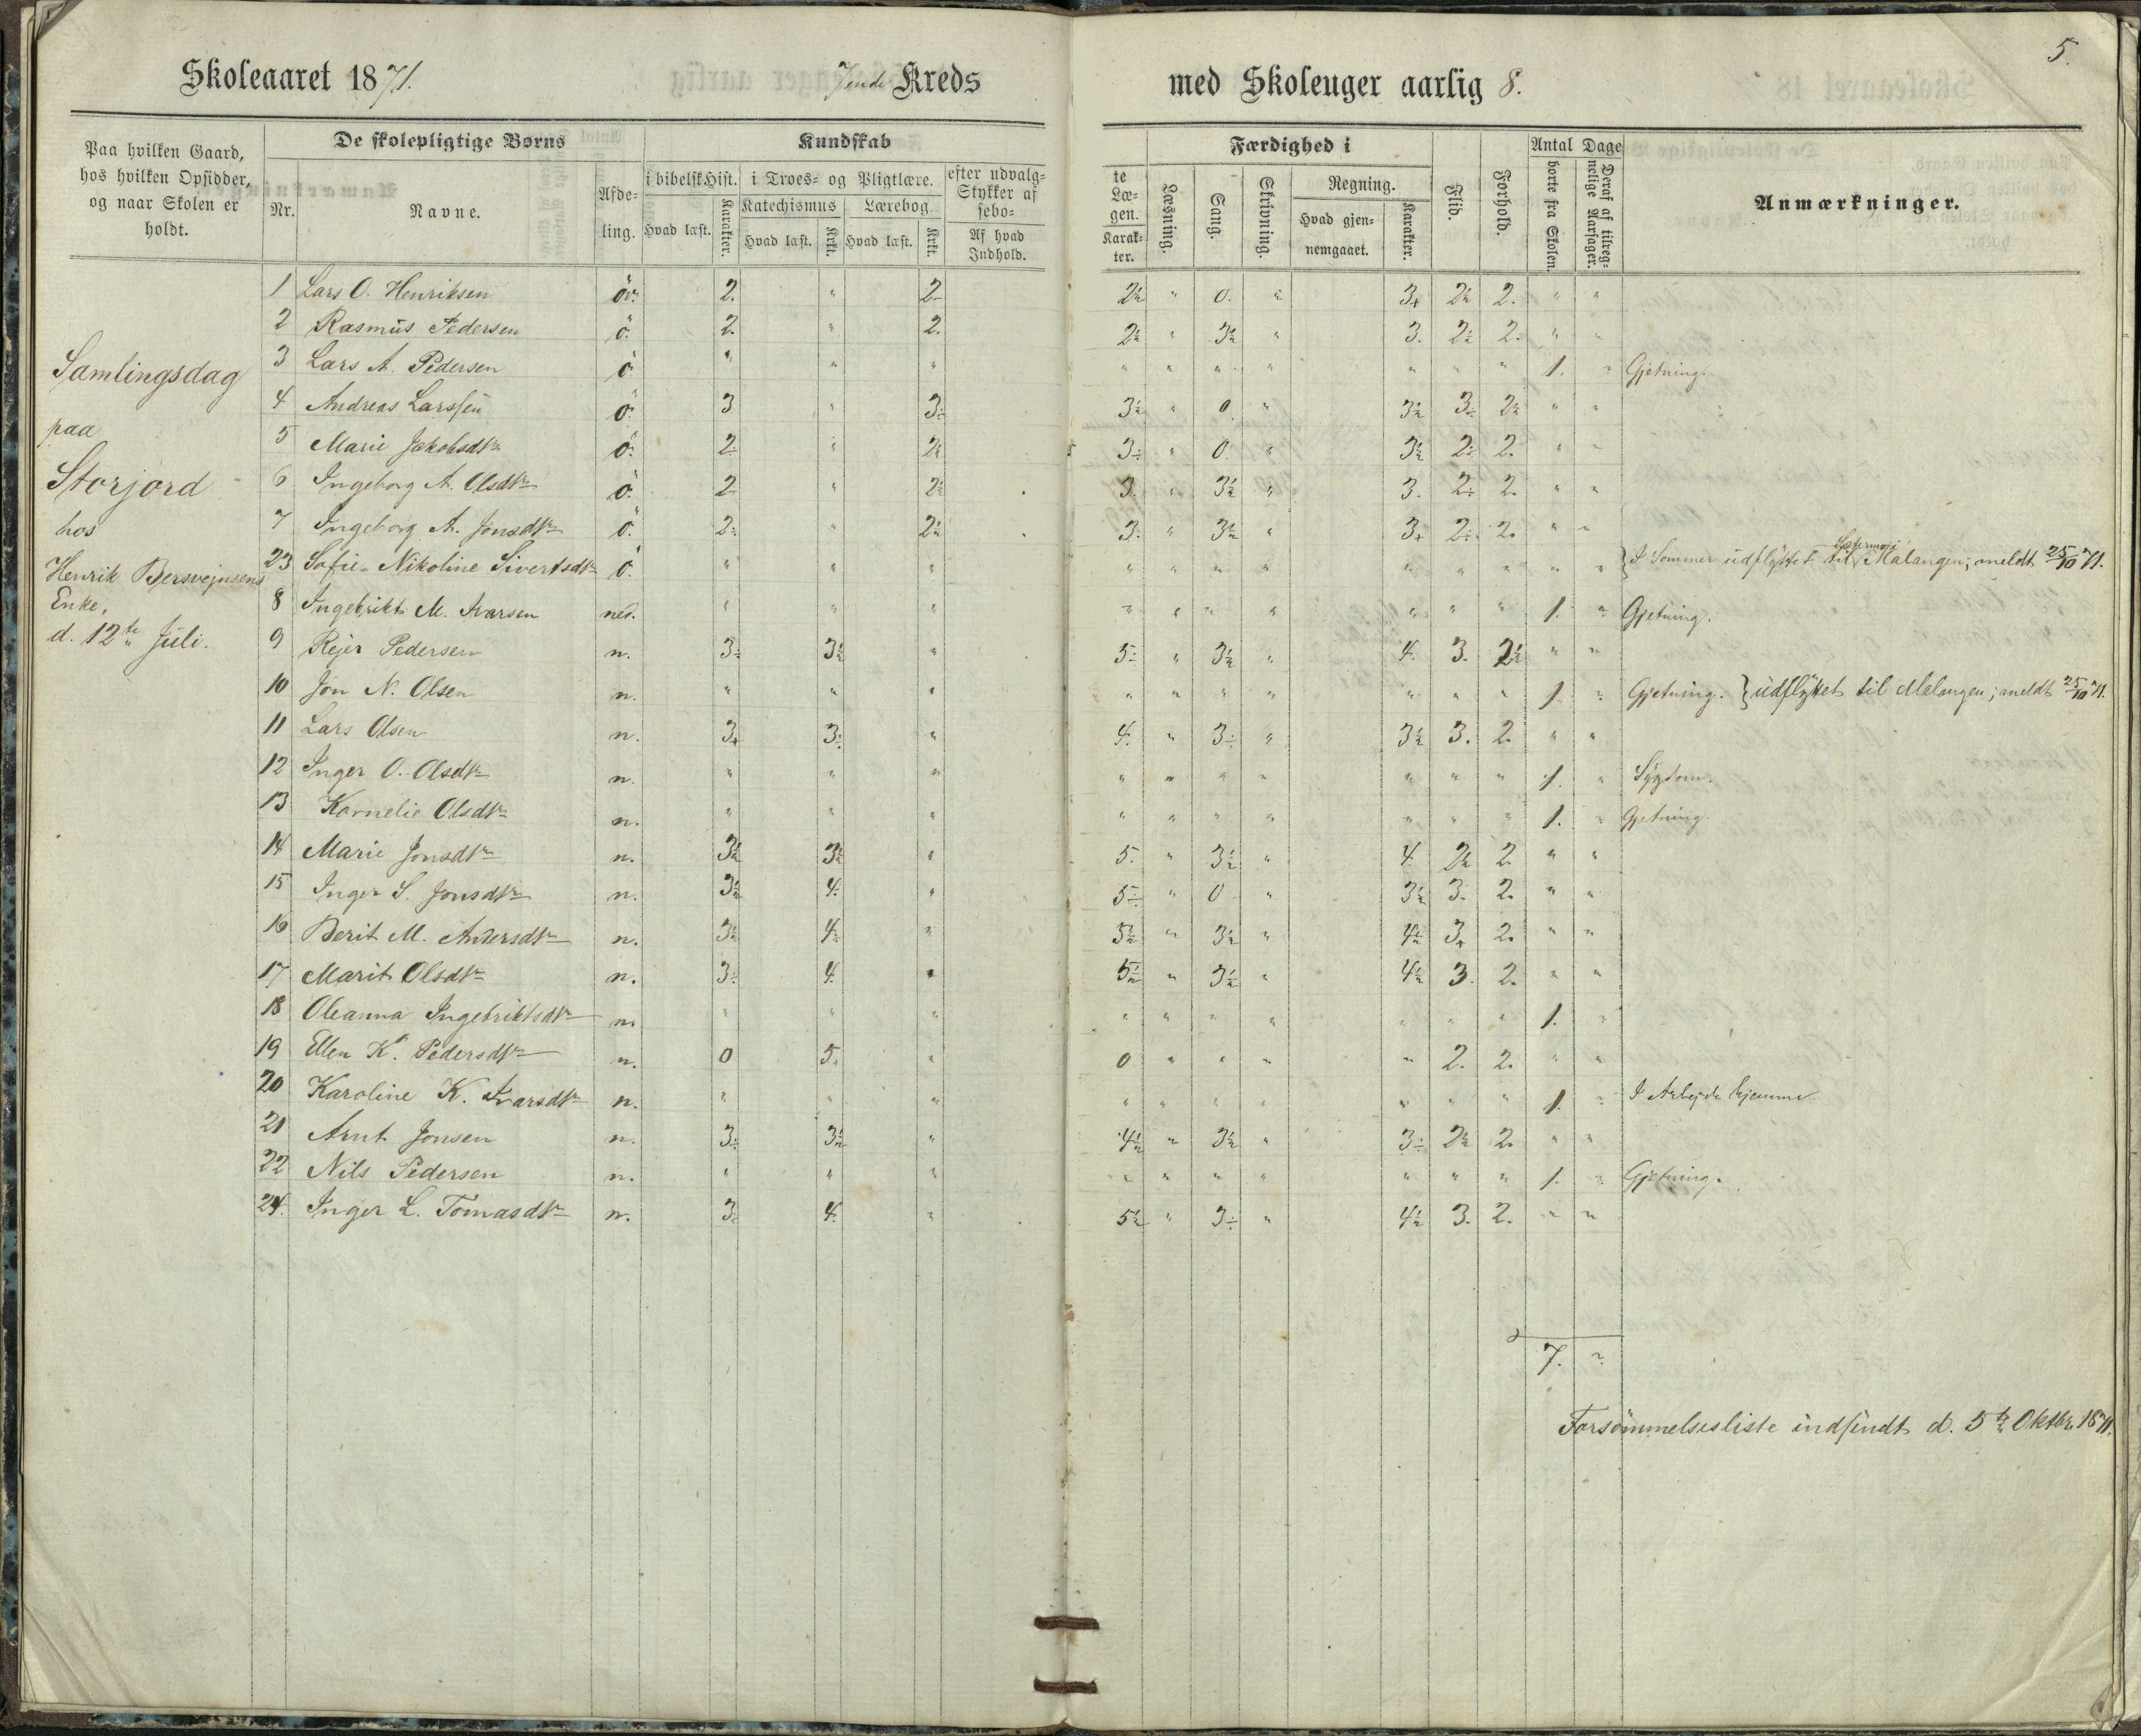 5.
Skoleaaret 1871. 7ende Kreds med Skoleuger aarlig 8.
Paa hvilken Gaard, hos hvilken Opsidder, og naar Skolen er holdt.
De skolepligtige Børns
Nr. Navne.
Afdeling.
Kundskab
i bibelsk Hist. i Troes- og Pligtlære. efter udvalg-te Stykker af Læsebogen.
Katechismus Lærebog.
Hvad læst. Karakter. Hvad læst. Krkt. Hvad læst. Krkt. Af hvad Indhold. Karakter.
Færdighed i
Læsning. Sang. Skrivning. Regning.
Hvad gjennemgaaet. Karakter.
Flid. Forhold.
Antal Dage
borte fra Skolen. Deraf af tilregnelige Aarsager.
Anmærkninger.
Samlingsdag
paa
Storjord
hos
Henrik Bersvejnsens
Enke,
d. 12te Juli.
1 Lars O. Henriksen ö. 2. " 2- 2½ " 0. " 3+ 2½ 2. " "
2 Rasmus Pedersen ö. 2. " 2. 2½ " 3½ " 3. 2½ 2. " "
3 Lars A. Pedersen ö. " " " " " " " " " " 1. " Gjetning.
4 Andreas Larssen ö. 3 " 3÷ 3½ " 0 " 3½ 3÷ 2½ " "
5 Marie Jakobsdtr ö. 2÷ " 2½ 3÷ " 0. " 3½ 2÷ 2. " "
6 Ingeborg A. Olsdtr ö. 2- " 2½ 3. " 3½ " 3. 2÷ 2. " "
7 Ingeborg A. Jonsdtr ö. 2÷ " 2½ 3. " 3½ " 3+ 2÷ 2. " "
23 Sofie Nikoline Sivertsdtr ö. " " " " " " " " " " " " } I Sommer udflyttet til Malangen; meldt 25/10 71.
8 Ingebrikt M. Ivarsen ned. " " " " " " " " " " 1. " Gjetning.
9 Rejer Pedersen n. 3÷ 3½ " 5÷ " 3½ " 4. 3. 2½ " "
10 Jon N. Olsen n. " " " " " " " " " " 1. " Gjetning. } udflyttet til Malangen; meldt 25/10 71.
11 Lars Olsen n. 3+ 3÷ " 4. " 3÷ " 3½ 3. 2. " "
12 Inger O. Olsdtr n. " " " " " " " " " " 1. " Sygdom.
13 Kornelie Olsdtr n. " " " " " " " " " " 1. " Gjetning.
14 Marie Jonsdtr n. 3½ 3½ " 5. " 3½ " 4. 2½ 2. " "
15 Inger S. Jonsdtr n. 3½ 4. " 5÷ " 0 " 3½ 3. 2. " "
16 Berit M. Andersdtr n. 3½ 4÷ " 5½ " 3½ " 4½ 3+ 2. " "
17 Marit Olsdtr n. 3÷ 4. " 5½ " 3½ " 4½ 3. 2. " "
18 Oleanna Ingebriktsdtr n. " " " " " " " " " " 1. "
19 Ellen K. Pedersdtr n. 0 5. " 0 " " " " 2. 2. " "
20 Karoline K. Ivarsdtr n. " " " " " " " " " " 1. " I Arbejde hjemme.
21 Arnt Jonsen n. 3÷ 3½ " 4½ " 3½ " 3÷ 2½ 2. " "
22 Nils Pedersen n. " " " " " " " " " " 1. " Gjetning.
24. Inger L. Tomasdtr n. 3÷ 4. " 5½ " 3÷ " 4½ 3. 2. " "
7. "
Forsömmelsesliste indsendt d. 5te Oktbr. 1871.